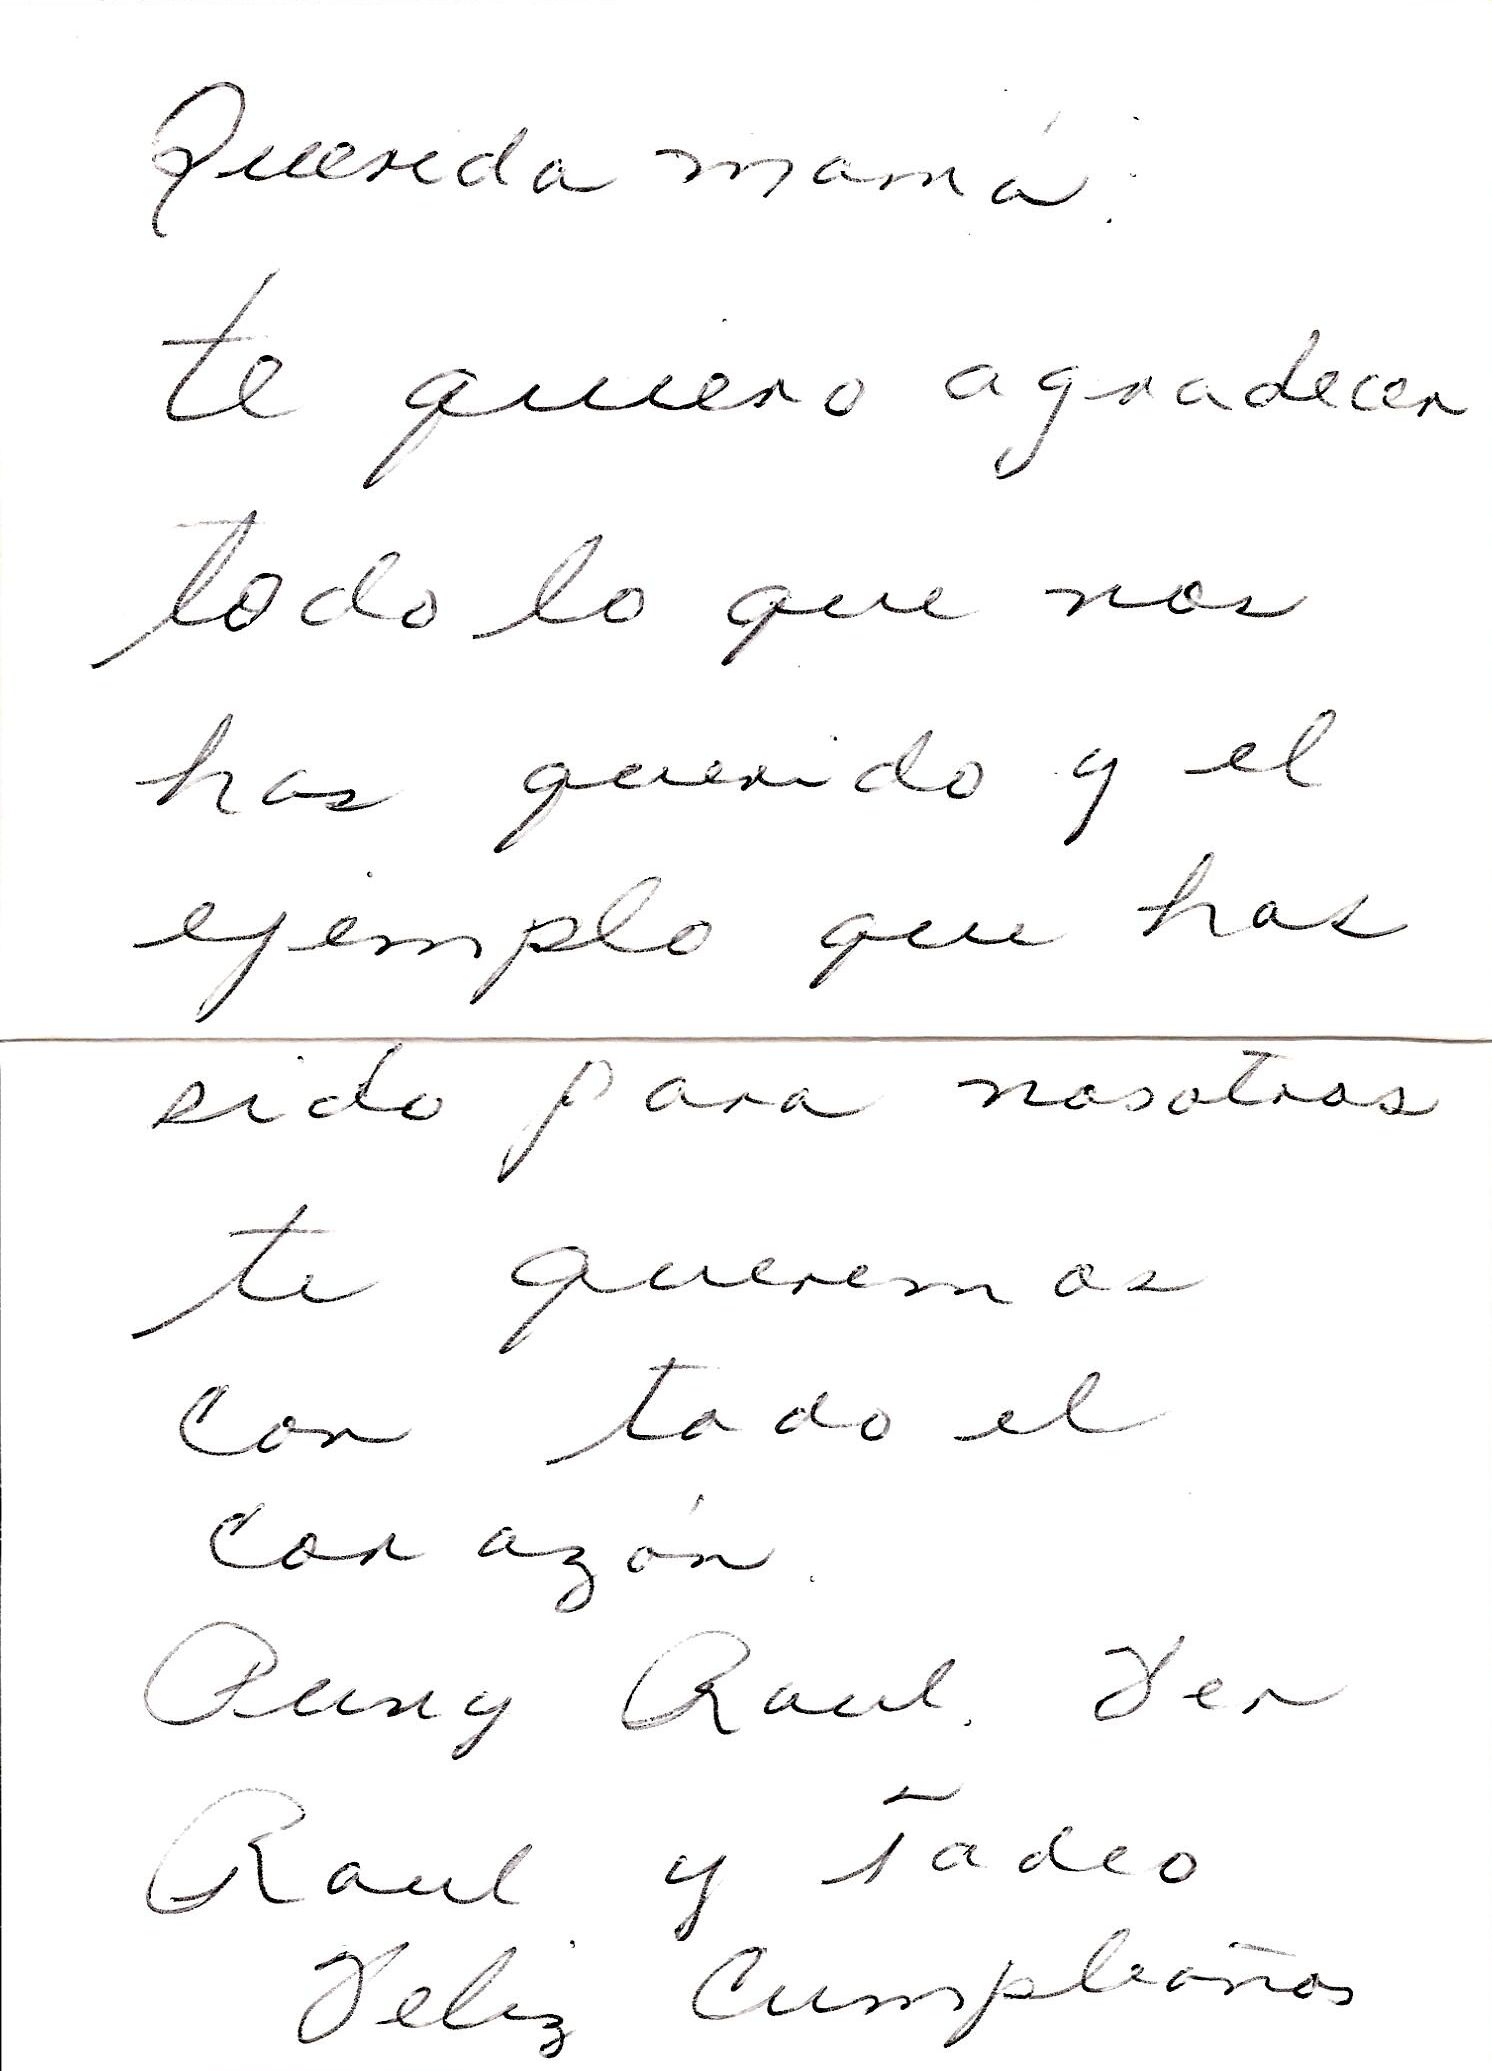 Querida mamá:
te quiero agradecer
todo lo que nos
has querido y el
ejemplo que has
sido para nosotros
te queremos
con todo el
corazón.
Raul. Fer
Raul y Tadeo
Feliz Cumpleaños